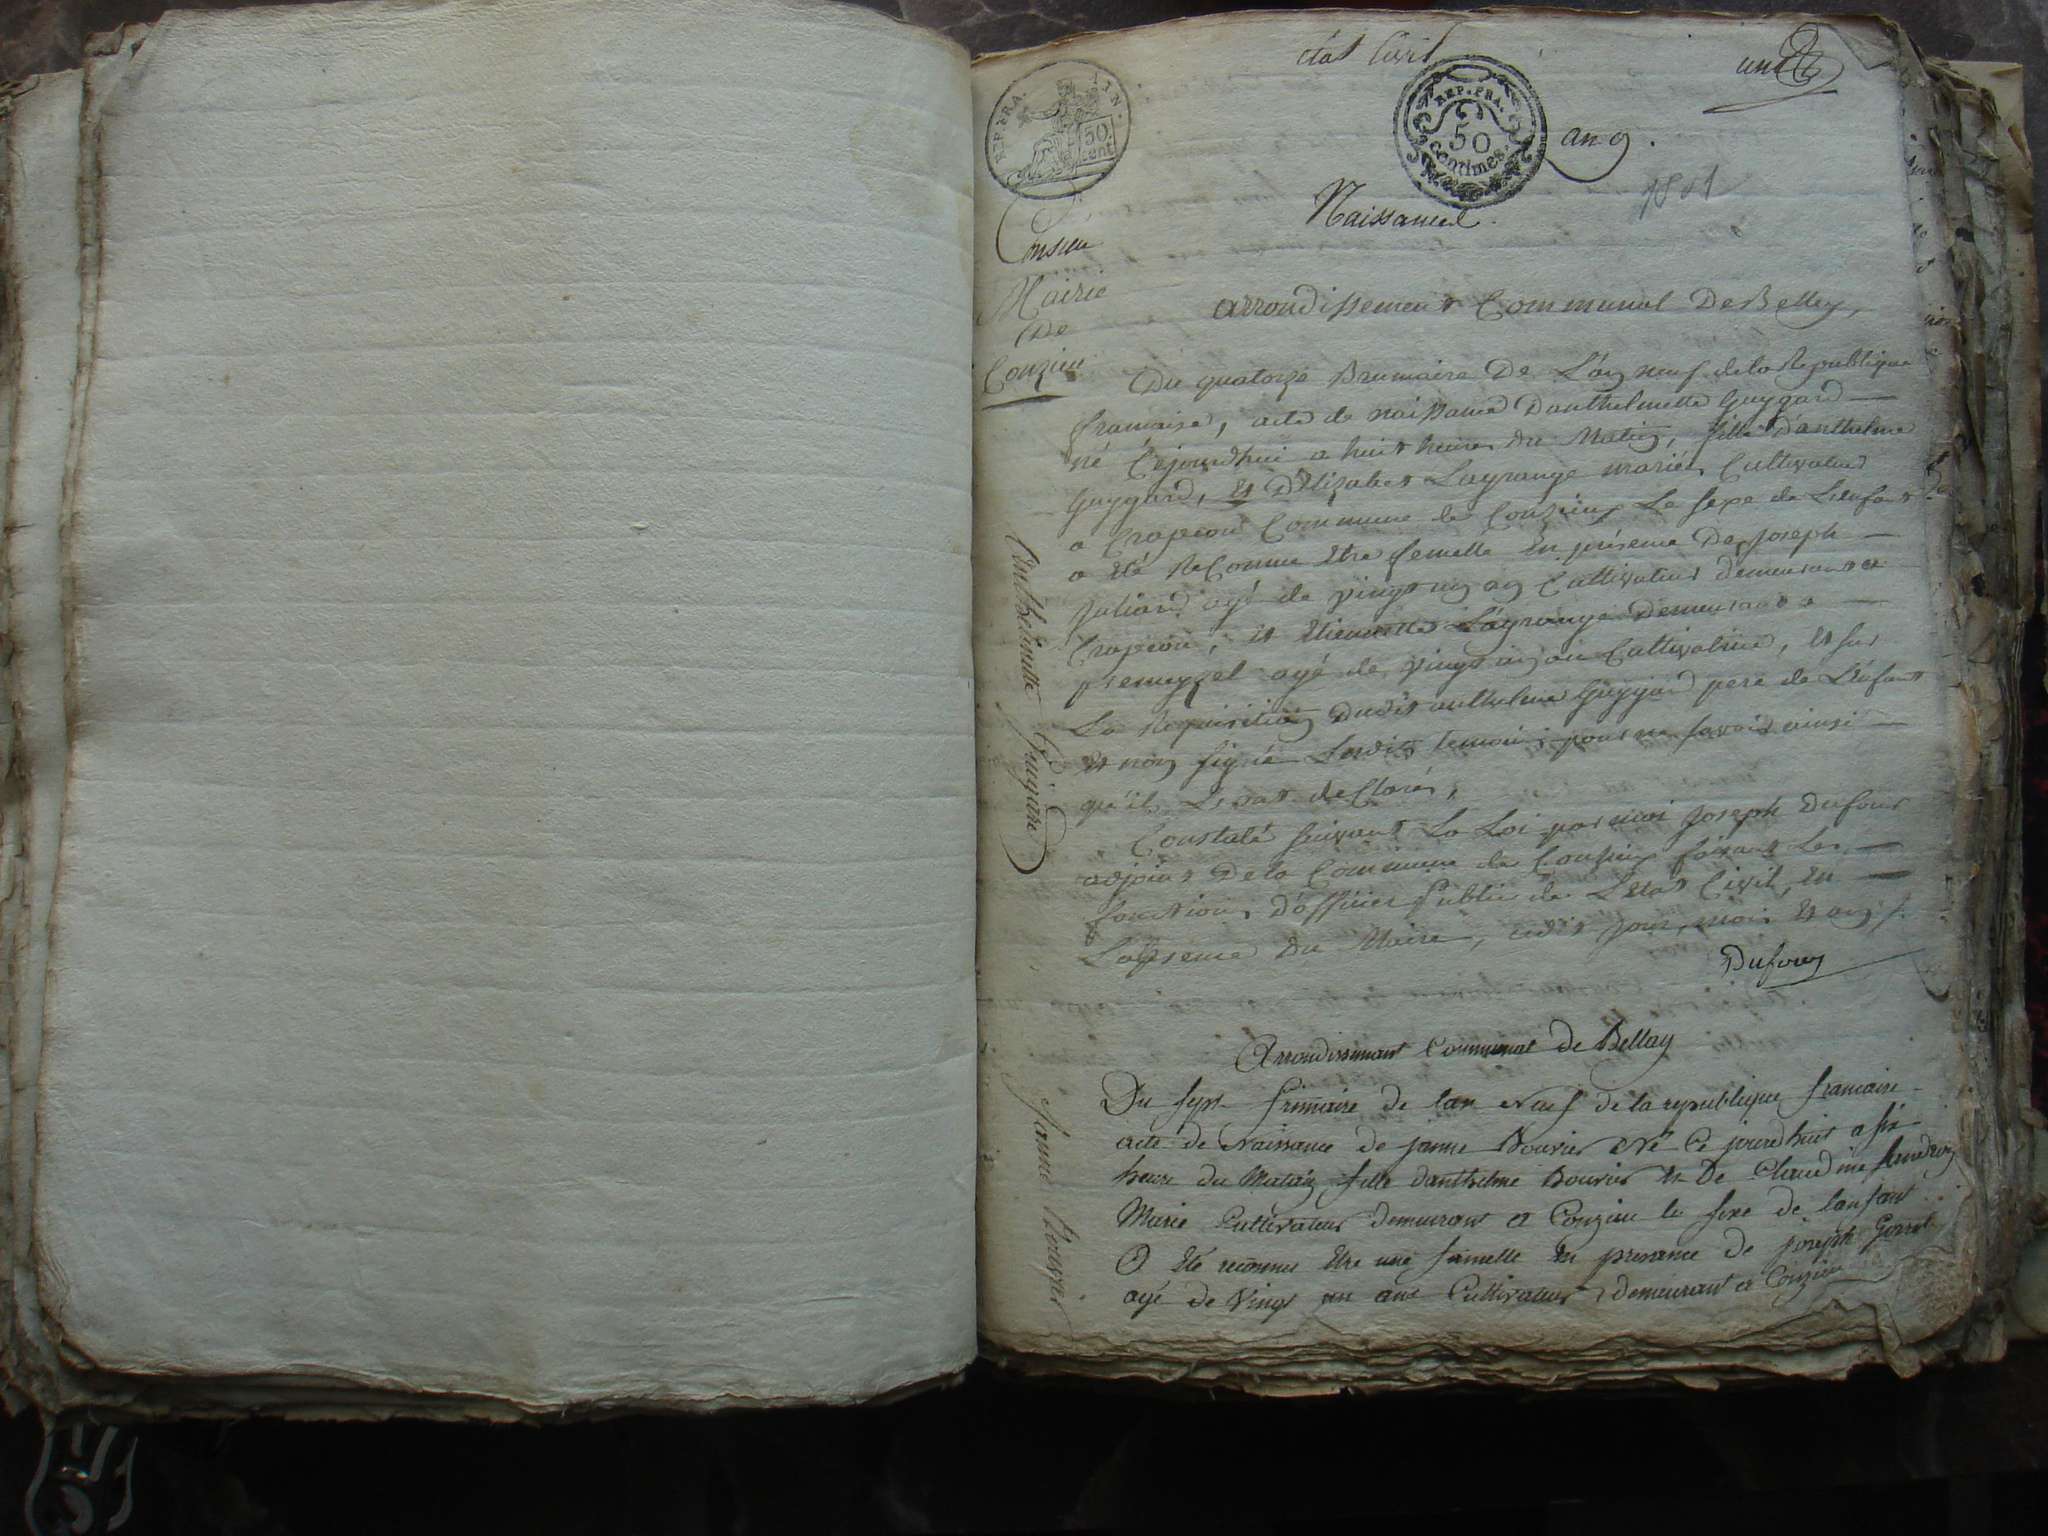 état Civil
une
REP. FRA.
50
cent
REP. FRA.
50
centimes.
an 9.
1801
Naissances.
Conzieu
Mairie
De
Conzieu
arrondissement Communal De Belley,
Du quatorze Brumaire De L'an neuf de la Republique
francaise, acte de naissance Danthelmette Guygard
né Cejourdhui a huit heures du Matin, fille D'anthelme
Guygard, et D'Elizabet Lagrange mariés Cultivateurs
a Crapeou Commune de Conzieu, Le sexe de L'enfant
a été Reconnu Etre femelle En présence De Joseph
Juliand agé de vingt un an Cultivateur demeurant a
Crapeou, et Etiennette Lagrange Demeurant a
premeyzel agé de vingt un an Cultivatrice, et sur
La Requisition Dudit anthelme Guygard pere de L'enfant
et non signé Lesdits temoins pour ne savoir ainsi
qu'ils L'ont declarés,
Constaté suivant La Loi par moi Joseph Dufour
adjoint De la Commune de Conzieu faisant Les
fonctions D'officier Public de L'Etat Civil, En
L'absence Du Maire, cedit jour, mois Et an
Dufour
Anthelmette Guigard
Arrondissemant Communal de Bellay
Du sept frimaire de lan Neuf de la republique francaise
acte de Naissance de janne Bouvier Né Ce jourdhuit a six
heure du Matin fille danthelme Bouvier et De Claudine
Marie Cultivateur demeurant a Conzieu le sexe de lanfant
A Eté reconnu Etre une famelle en presance de joseph
agé de Vingt un ans Cultivateur demeurant a Conzieu
Janne Bouvier